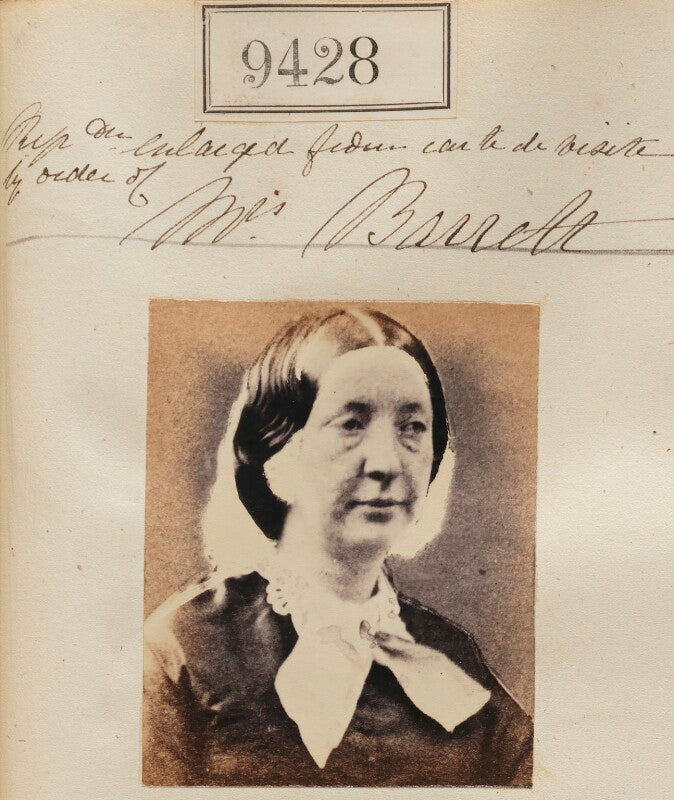 9428
Rep dn enlarged from carte de visite
by order of
Mrs Barrett